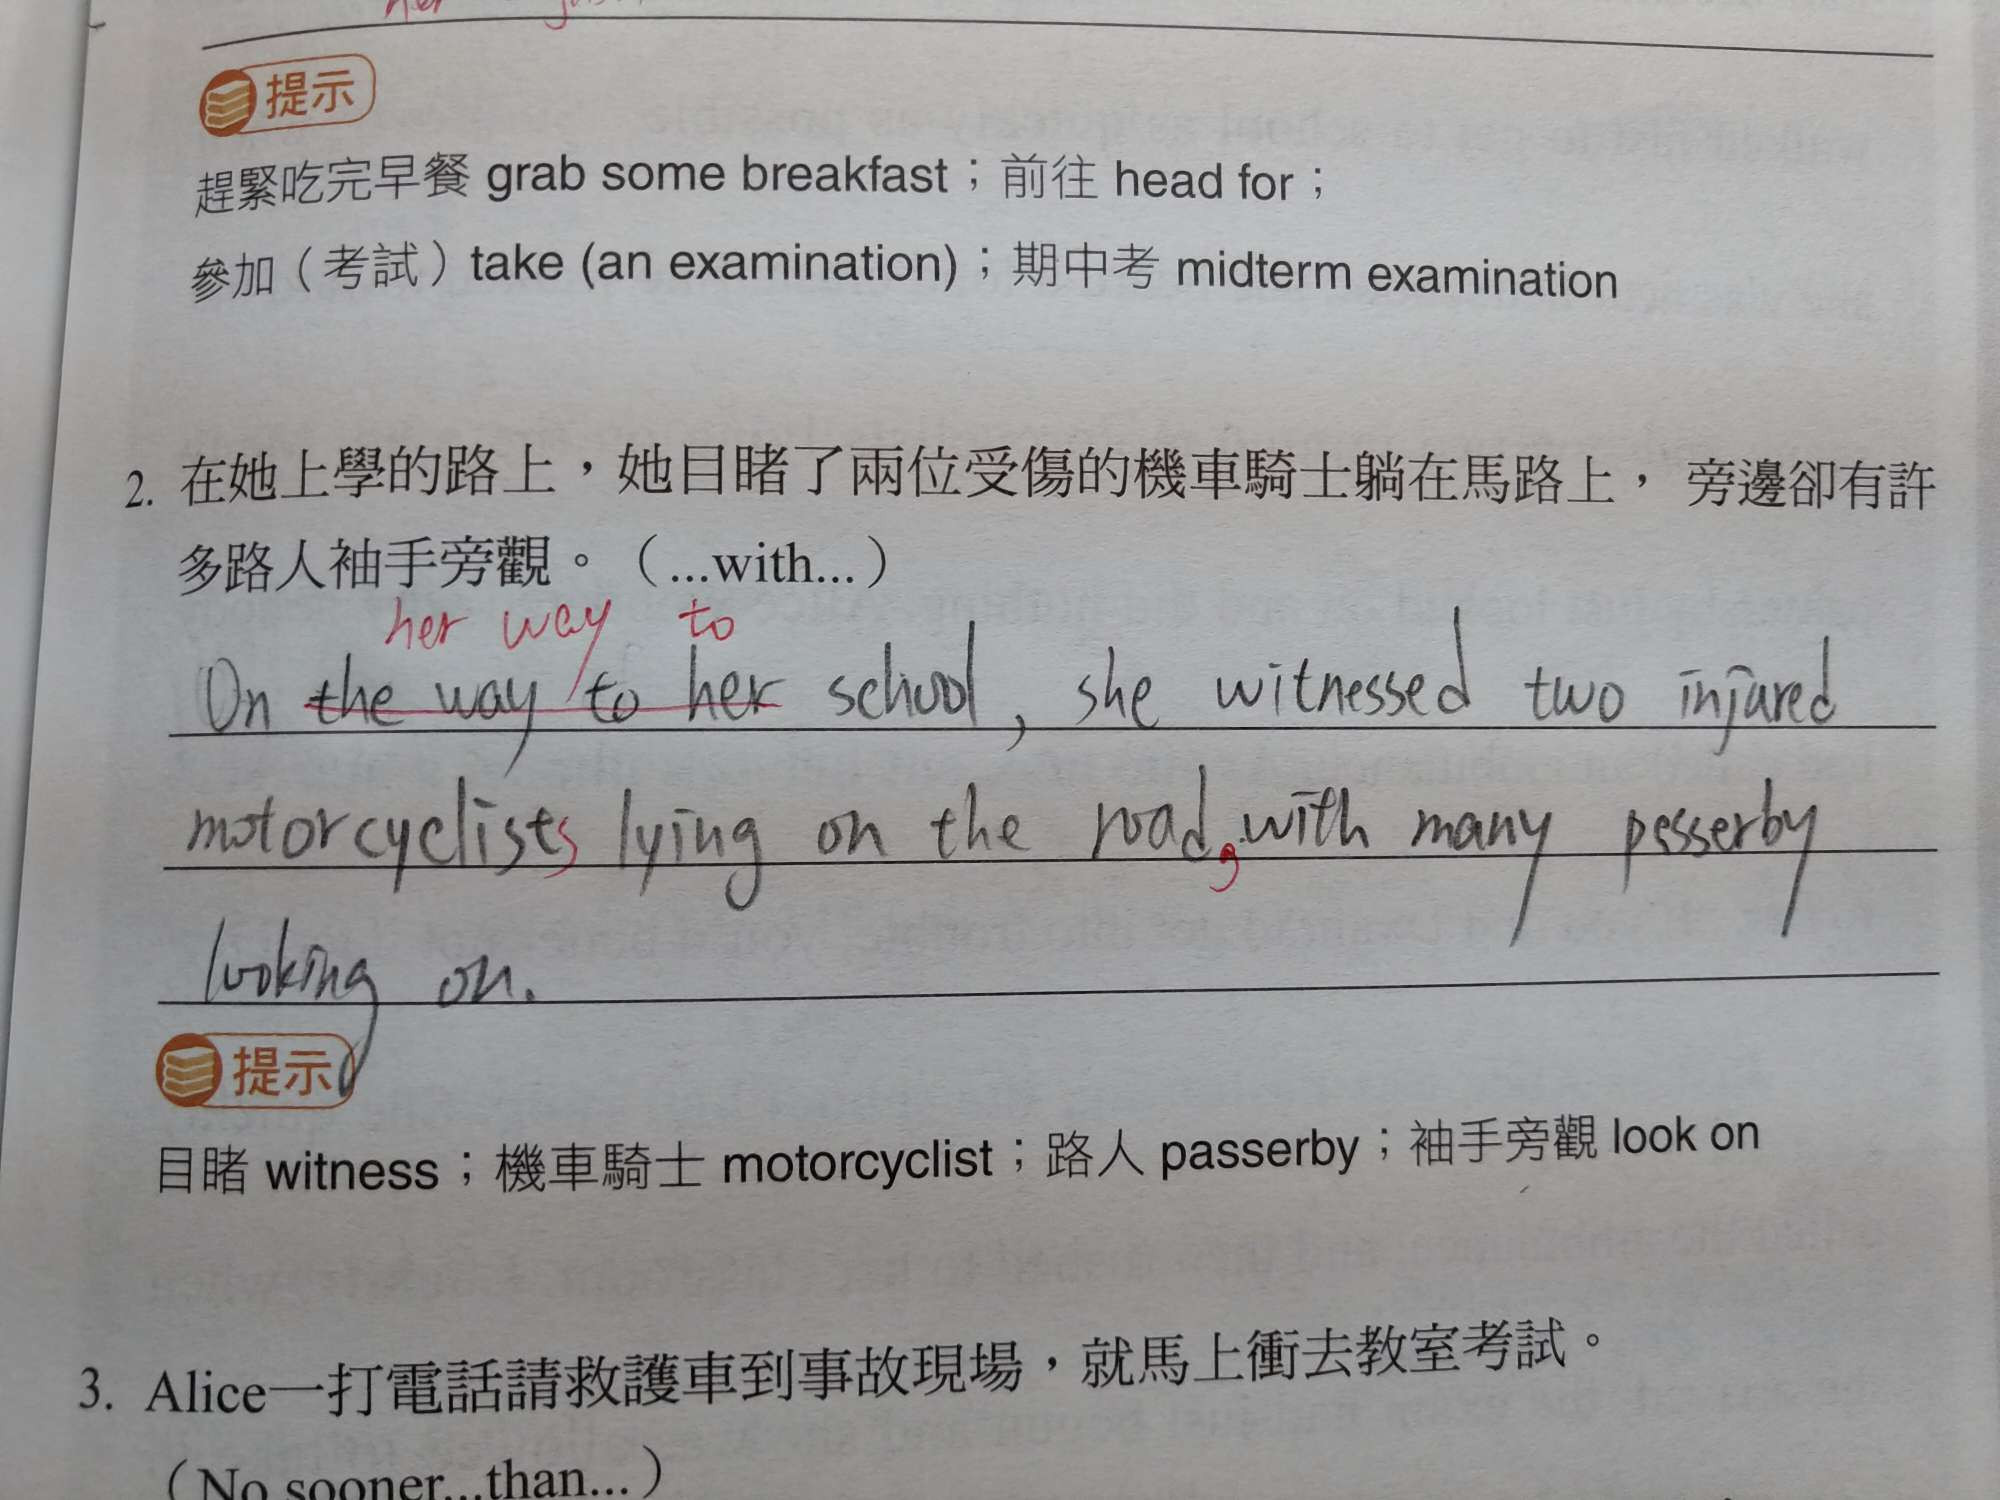 her
提示
趕緊吃完早餐 grab some breakfast；前往 head for；
參加（考試）take (an examination)；期中考 midterm examination
2. 在她上學的路上，她目睹了兩位受傷的機車騎士躺在馬路上， 旁邊卻有許
多路人袖手旁觀。（...with...）
her way to
On the way to her school, she witnessed two injured
motorcyclists lying on the road, with many passerby
looking on.
提示
目睹 witness；機車騎士 motorcyclist；路人 passerby；袖手旁觀 look on
3. Alice一打電話請救護車到事故現場，就馬上衝去教室考試。
（No sooner...than...）